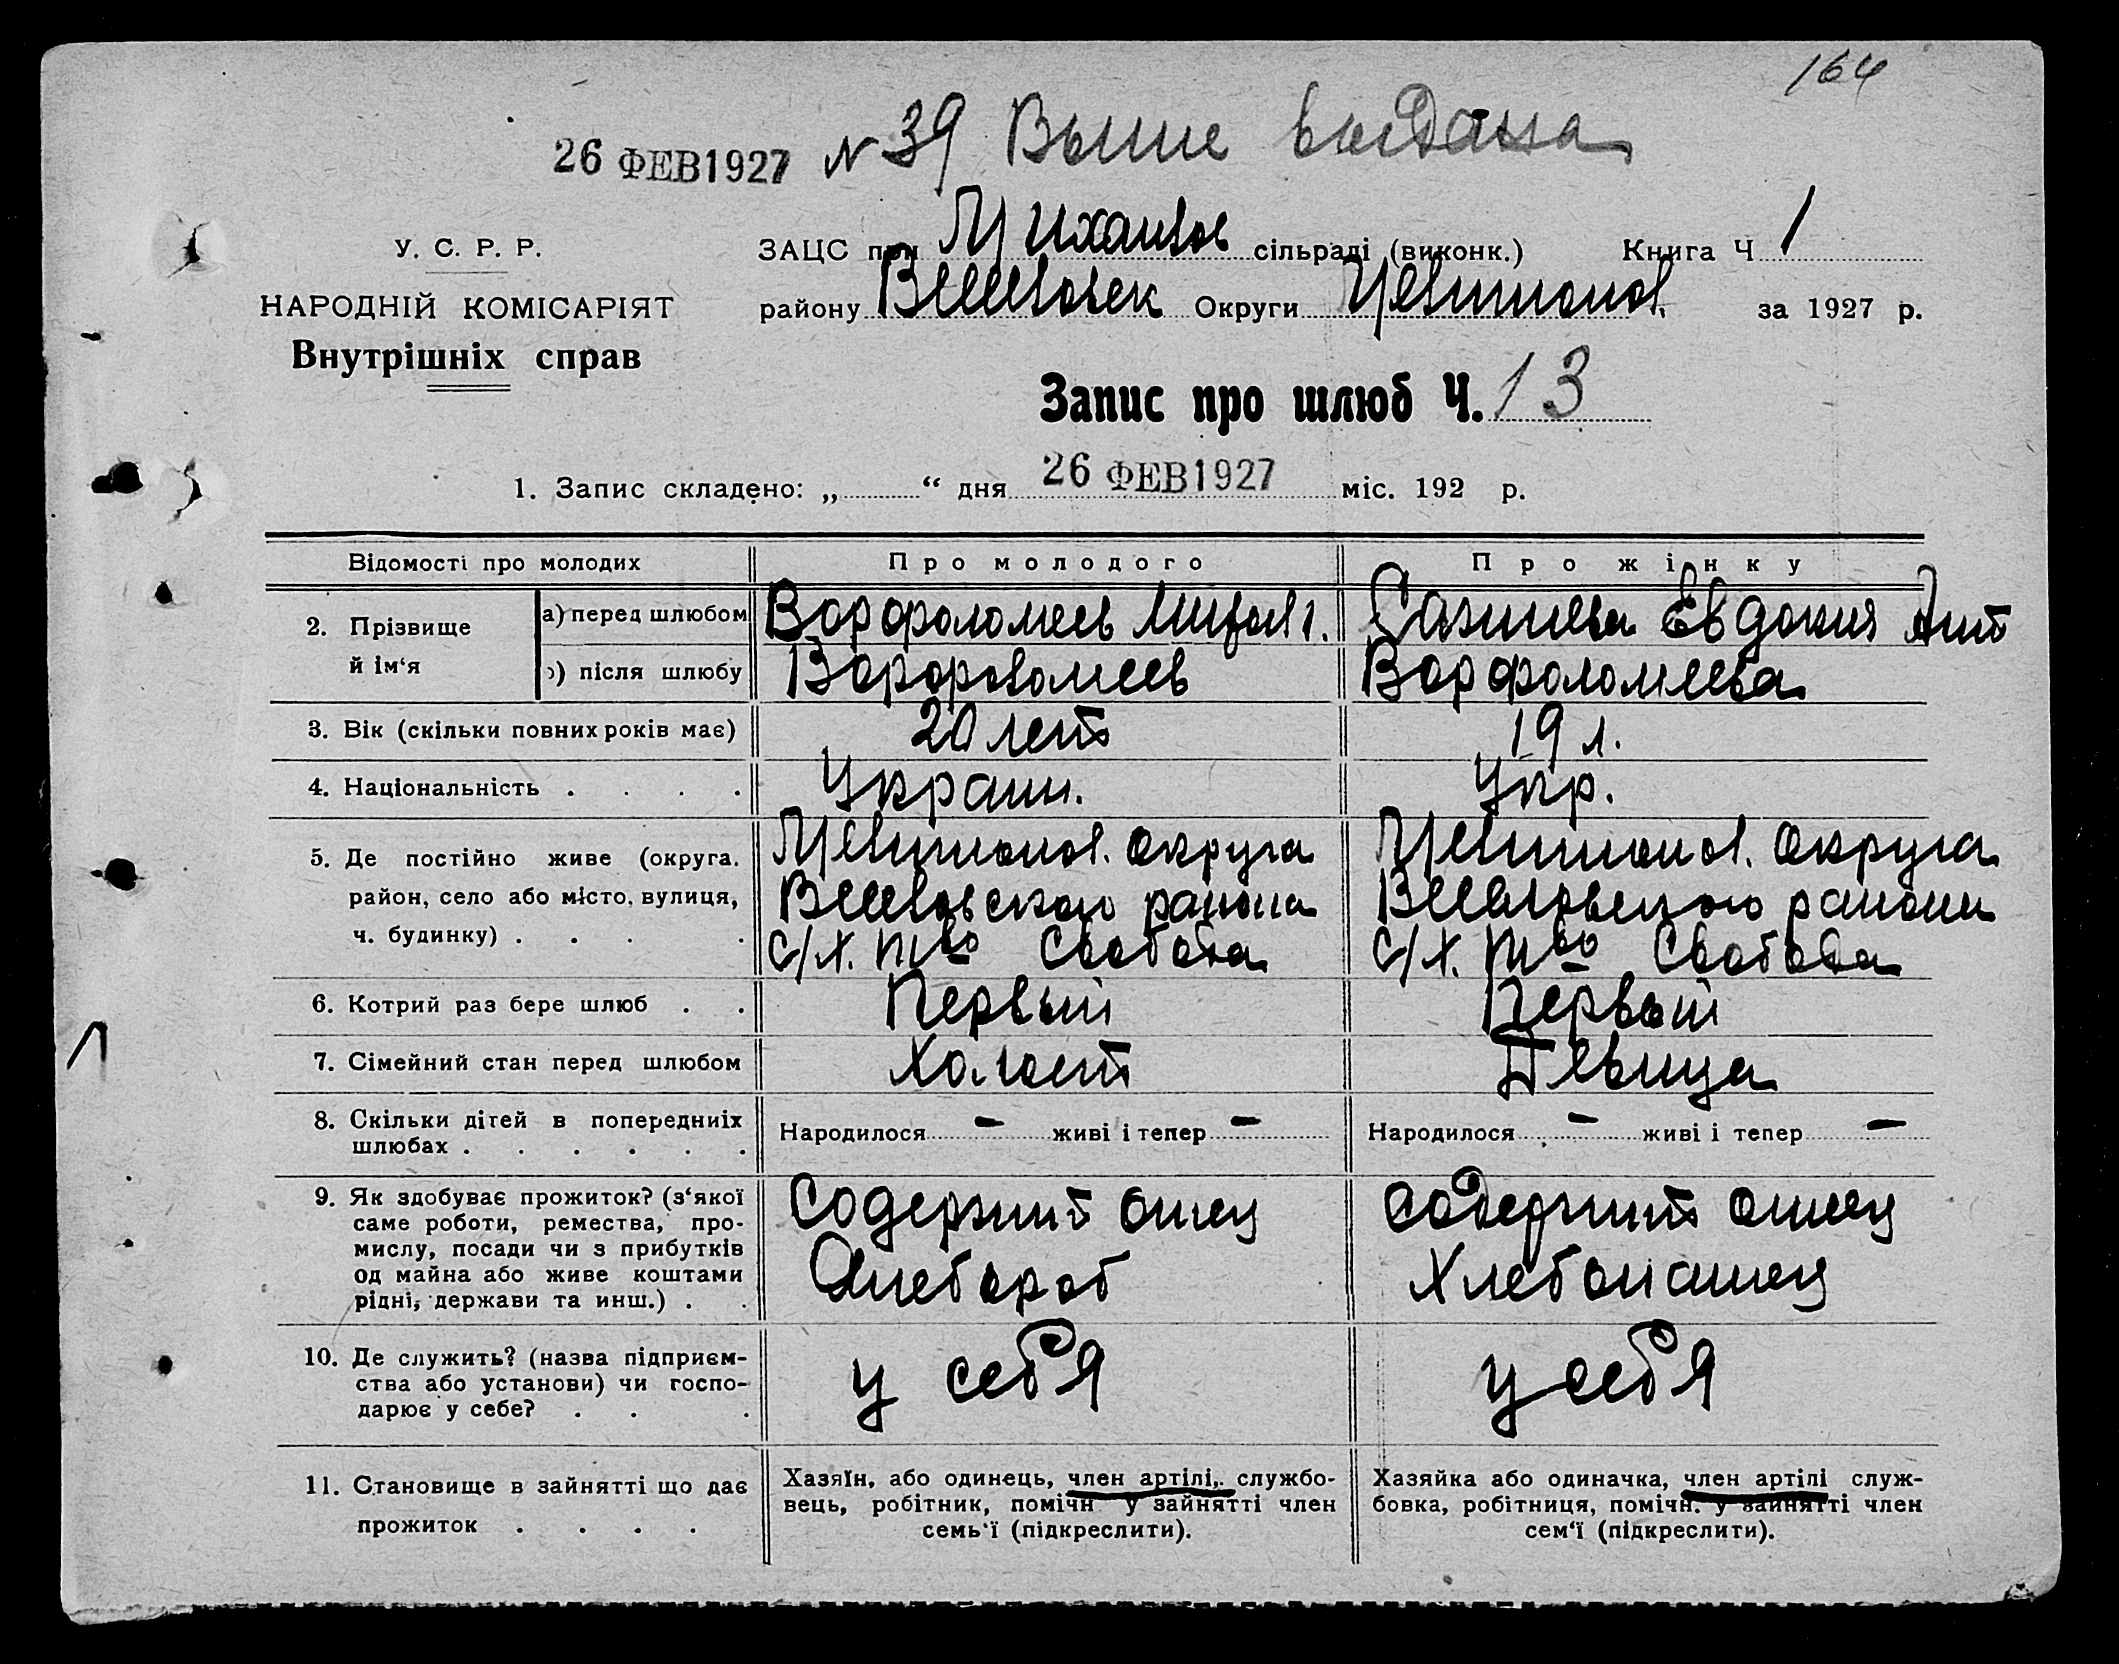 164
26 ФЕВ 1927 N 39 Выпис выдана
У. С. Р. Р.
НАРОДНІЙ КОМІСАРІЯТ
Внутрішніх справ
ЗАЦС при Михайлов сільраді (виконк.) Книга Ч 1
району Веселовск Округи Мелитопол. за 1927 р.
Запис про шлюб Ч. 13
1. Запис складено: „ “ дня 26 ФЕВ 1927 міс. 192 р.
Відомості про молодих Про молодого Про жінку
2. Прізвище й ім‘я
а) перед шлюбом Ворфоломеев Евдокия
) після шлюбу Ворфоломеев Ворфоломеева
3. Вік (скільки повних років має) 20 лет 19 л.
4. Національність . . . . Украин. Укр.
5. Де постійно живе (округа, Мелитопол. округа Мелитопол. округа
район, село або місто, вулиця, Веселовского района Веселовского района
ч. будинку) . . . . с/х. тво Свобода с/х. тво Свобода
6. Котрий раз бере шлюб . . Первый Первый
7. Сімейний стан перед шлюбом Холост Девица
8. Скільки дітей в попередниіх Народилося - живі і тепер - Народилося - живі і тепер -
шлюбах . . . . . .
9. Як здобуває прожиток? (з‘якої содержит отец содержит отец
саме роботи, ремества, про-
мислу, посади чи з прибутків
од майна або живе коштами Хлебороб Хлебопашец
рідні, держави та инш.) . .
10. Де служить? (назва підприєм- у себя у себя
ства або установи) чи госпо-
дарює у себе? . . .
11. Становище в зайнятті що дає
прожиток . . . .
Хазяїн, або одинець, член артілі, службо-
вець, робітник, помічн у зайнятті член
семь‘ї (підкреслити).
Хазяйка або одиначка, член артілі служ-
бовка, робітниця, помічн. у зайнятті член
сем‘ї (підкреслити).